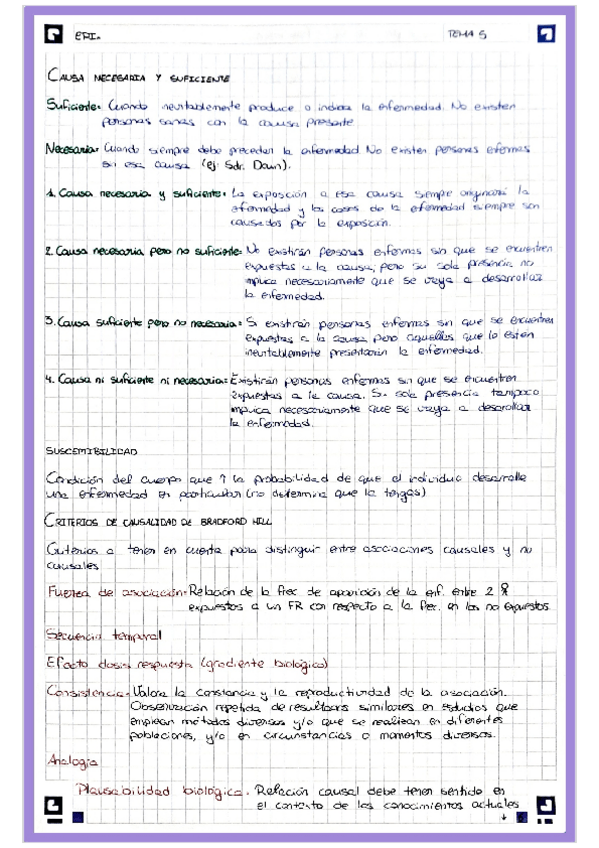 EPI.
TEMA 5
CAUSA NECESARIA Y SUFICIENTE
Suficiente: Cuando inevitablemente produce o indica la enfermedad. No existen
personas sanas con la causa presente.
Necesaria: Cuando siempre debe preceder la enfermedad No existen personas enfermas
sin esa causa (ej: Sdr. Down).
1. Causa necesaria y suficiente: La exposición a esa causa siempre originará la
enfermedad y los casos de la enfermedad siempre son
causados por la exposición.
2. Causa necesaria pero no suficiente: No existirán personas enfermas sin que se encuentren
expuestas a la causa, pero su sola presencia no
implica necesariamente que se vaya a desarrollar
la enfermedad.
3. Causa suficiente pero no necesaria: Si existirán personas enfermas sin que se encuentren
expuestas a la causa pero aquellas que lo estén
inevitablemente presentarán la enfermedad.
4. Causa ni suficiente ni necesaria: Existirán personas enfermas sin que se encuentren
expuestas a la causa. Su sola presencia tampoco
implica necesariamente que se vaya a desarrollar
la enfermedad.
SUSCEPTIBILIDAD
Condición del cuerpo que ↑ la probabilidad de que el individuo desarrolle
una enfermedad en particular (no determina que la tengas)
CRITERIOS DE CAUSALIDAD DE BRADFORD HILL
Criterios a tener en cuenta para distinguir entre asociaciones causales y no
causales
Fuerza de asociación: Relación de la frec de aparición de la enf. entre 2
expuestos a un FR con respecto a la frec. en los no expuestos
Secuencia temporal
Efecto dosis respuesta (gradiente biológico)
Consistencia: Valora la constancia y la reproductividad de la asociación.
Observación repetida de resultados similares en estudios que
emplean métodos diversos y/o que se realizan en diferentes
poblaciones, y/o en circunstancias o momentos diversos.
Analogía
Plausabilidad biológica. Relación causal debe tener sentido en
el contexto de los conocimientos actuales